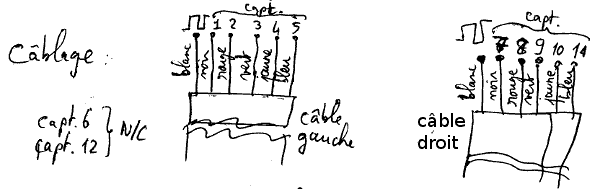 Câblage :
capt.
1 2 3 4 5
blanc noir rouge vert jaune bleu
câble
gauche
capt. 6
capt. 12
N/C
capt.
7 8 9 10 11
blanc noir rouge vert jaune bleu
câble
droit